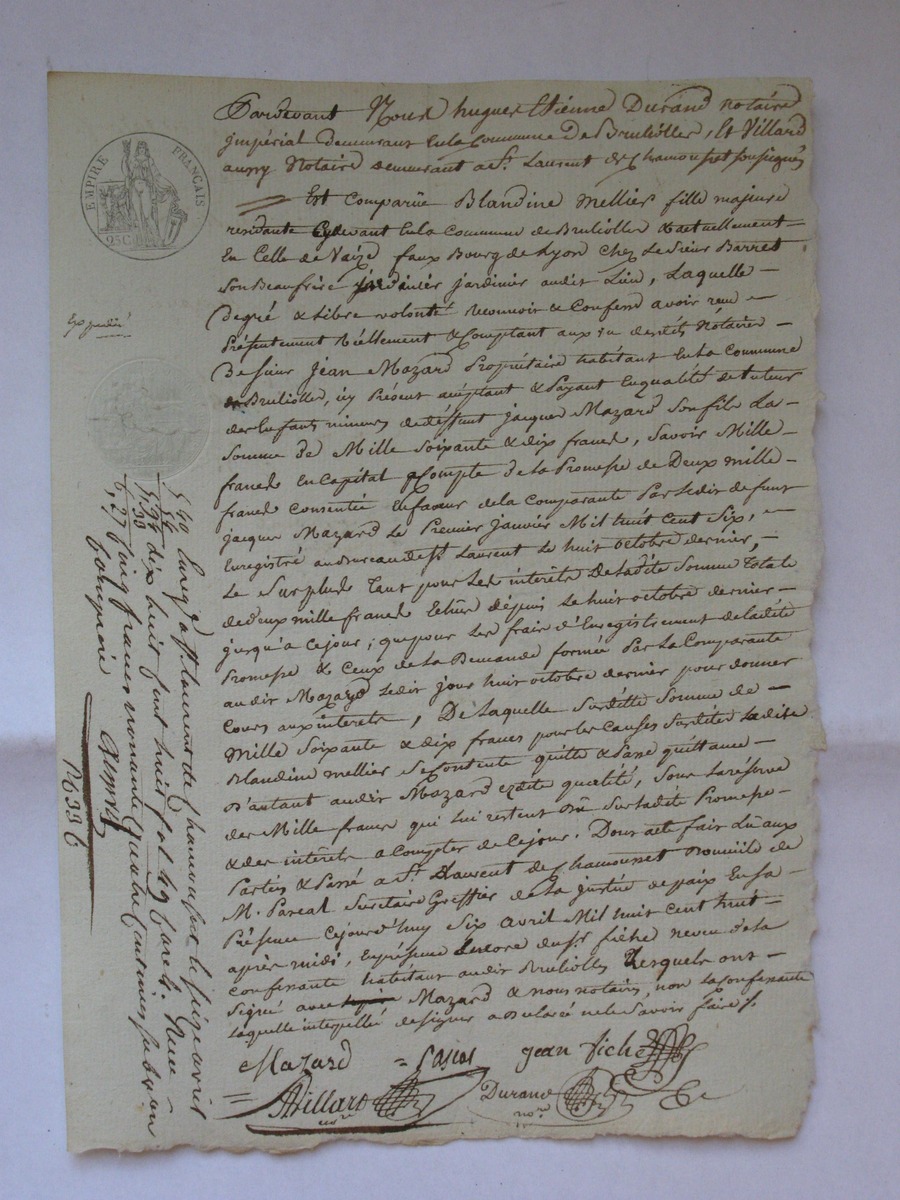 EMPIRE FRANÇAIS
25 C
Pardevant Nous hugues Etienne Durand notaire
impérial demeurant En la Commune De Brulliolles, Et Villard
aussy Notaire demeurant a St. Laurent de Chamousset soussignés
Est Comparüe Blandine Mellier fille majeure
residante Cydevant En la Commune de Brulliolles & actuellement
En Celle de Vaize faux Bourg de Lyon chez Le Sieur Barret
son Beaufrère jardinier audit Lieu, Laquelle
De gré & Libre volonté Reconnoit & Confesse avoir reçu
Présentement Réellement & Comptant aux vu desdits Notaires
De sieur jean Mazard Propriétaire habitant En La Commune
de Brulliolles, icy Présent acéptant & Payant En qualité de tuteur
des Enfants mineurs de déffunt jacques Mazard son fils La
Somme de Mille Soixante & dix francs, Savoir Mille
francs En Capital a Compte de La Promesse de Deux mille
francs Consentie En faveur de la Comparante Par Ledit defunt
jacques Mazard Le Premier Janvier Mil huit Cent Six,
Enregistré au Bureau de St Laurent Le huit octobre dernier,
Le Surplus Tant pour Les interêts De Ladite Somme Totale
de deux mille francs Echus depuis Le huit octobre dernier
jusqu'à Ce jour; que pour Les frais d'Enregistrement de Ladite
Promesse & Ceux de La Demande formée Par La Comparante
audit Mazard Ledit jour huit octobre dernier pour donner
Cours aux interêts, De Laquelle Susdite Somme de
Mille Soixante & dix francs pour les Causes Susdites Ladite
Blandine mellier Se Contente quitte & Passe quittance
D'autant audit Mazard qualité, Sous La réserve
des Mille francs qui Lui restent Dû Sur Ladite Promesse
& des interêts a Compter de Ce jour. Dont acte fait Lû aux
Parties & Passé a St. Laurent de Chamousset Domicile de
M. Pascal Secretaire Greffier de La justice de paix En sa
Présence Cejourd'huy Six avril Mil huit Cent huit
après midi, En présence Encore du Sr fiche neveu de la
confessante habitant audit Brulliolles Lesquels ont
Signé avec Mazard & nous notaires, non La Confessante
Laquelle interpellée de signer a Déclaré ne le Savoir faire
Mazard = Pascal jean fiche
Villard
nore
Durand
nore.
Expedié
Enregt. a St. Laurent de Chamousset le seize avril
dix huit cent huit fol. 49
cinq francs nonante quatre Centimes